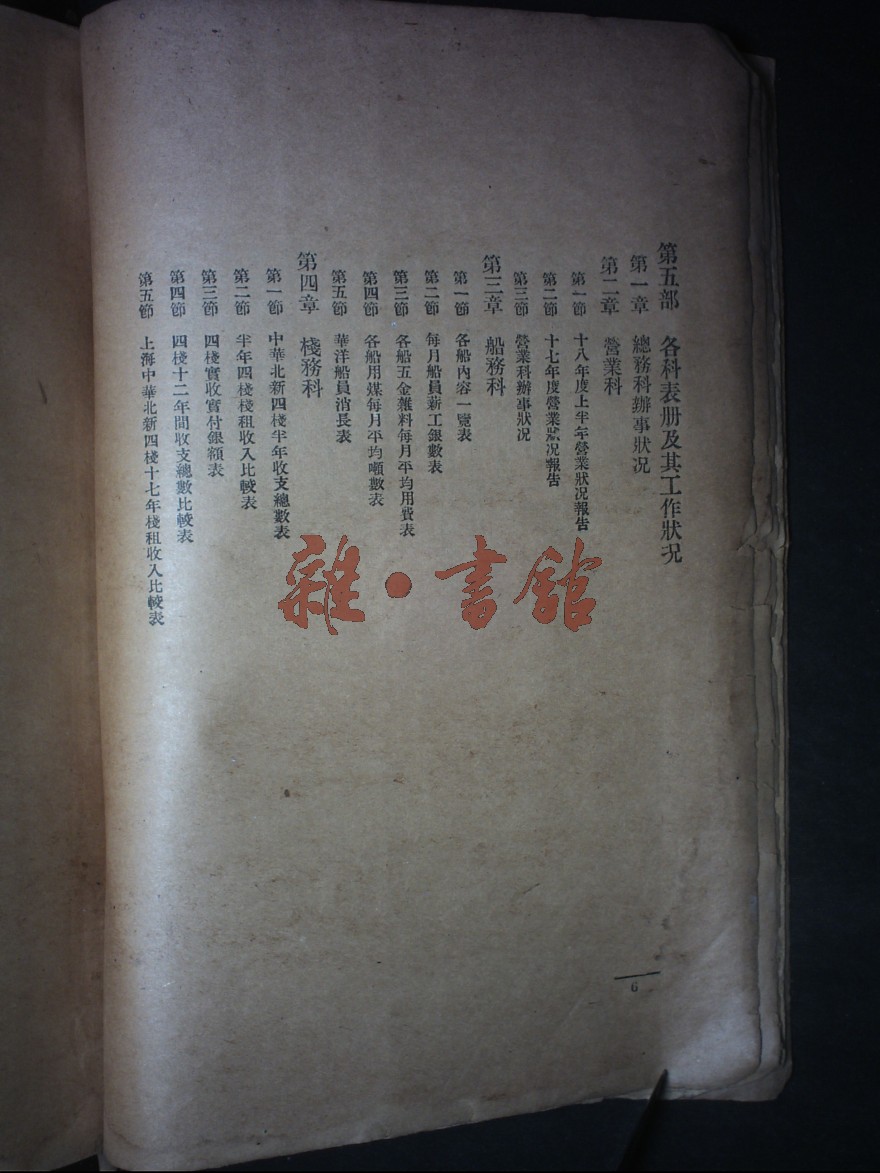 第五部　各科表册及其工作狀况
第一章　總務科辦事狀况
第二章　營業科
第一節　十八年度上半年營業狀况報告
第二節　十七年度營業狀况報告
第三節　營業科辦事狀况
第三章　船務科
第一節　各船內容一覽表
第二節　每月船員薪工銀數表
第三節　各船五金雜料每月平均用費表
第四節　各船用煤每月平均噸數表
第五節　華洋船員消長表
第四章　棧務科
第一節　中華北新四棧半年收支總數表
第二節　半年四棧棧租收入比較表
第三節　四棧實收實付銀額表
第四節　四棧十二年間收支總數比較表
第五節　上海中華北新四棧十七年棧租收入比較表
6
雜·書館